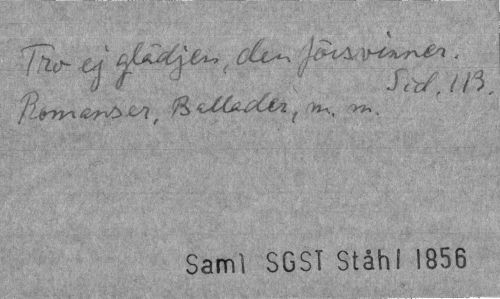 Tro ej glädjen, den försvinner.
Sid. 113.
Romanser, Ballader, m. m.
Saml SGST Ståhl 1856